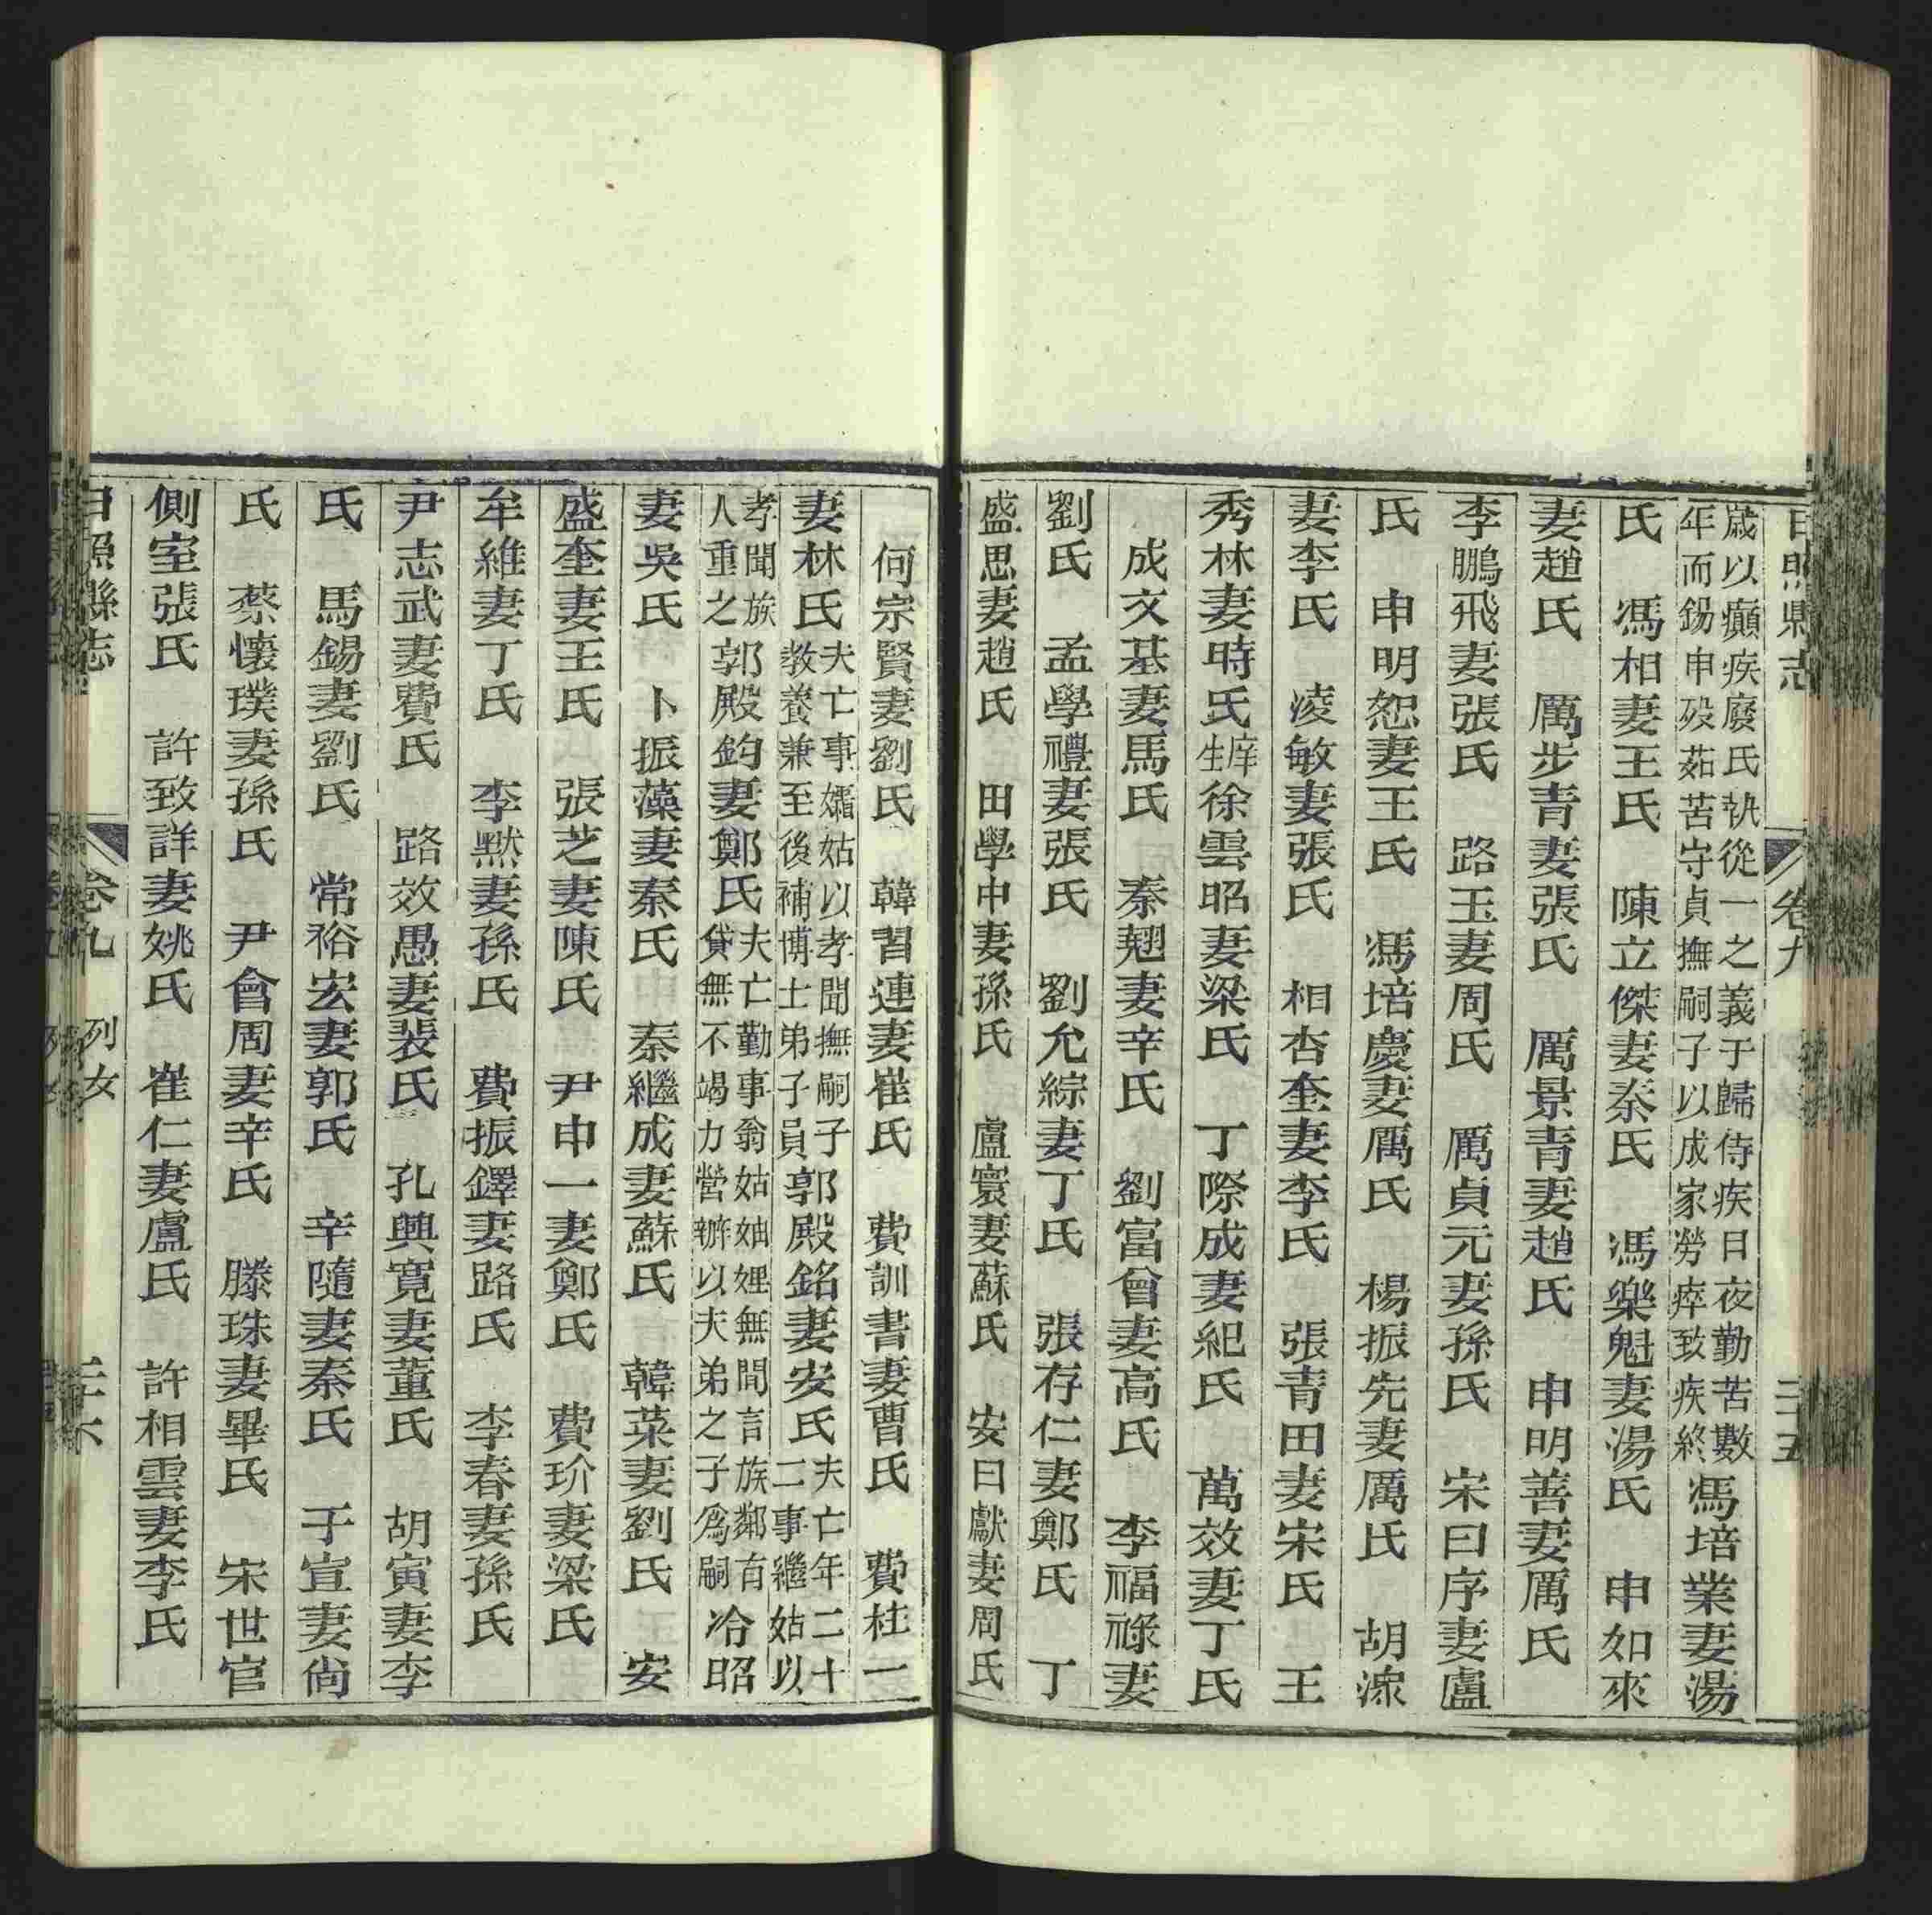 日照縣志 卷九 三五
歲以癲疾廢氏執從一之義于歸侍疾日夜勤苦數
年而錫申歿茹苦守貞撫嗣子以成家勞瘁致疾終
馮培業妻湯
氏 馮相妻王氏 陳立傑妻秦氏 馮樂魁妻湯氏 申如來
妻趙氏 厲步青妻張氏 厲景青妻趙氏 申明善妻厲氏
李鵬飛妻張氏 路玉妻周氏 厲貞元妻孫氏 宋曰序妻盧
氏 申明恕妻王氏 馮培慶妻厲氏 楊振先妻厲氏 胡淙
妻李氏 凌敏妻張氏 相杏奎妻李氏 張青田妻宋氏 王
秀林妻時氏 庠生徐雲昭妻梁氏 丁際成妻紀氏 萬效妻丁氏
成文基妻馬氏 秦翹妻辛氏 劉富曾妻高氏 李福祿妻
劉氏 孟學禮妻張氏 劉允綜妻丁氏 張存仁妻鄭氏 丁
盛思妻趙氏 田學中妻孫氏 盧寰妻蘇氏 安曰獻妻周氏
何宗賢妻劉氏 韓習連妻崔氏 費訓書妻曹氏 費柱一
妻林氏
夫亡事孀姑以孝聞撫嗣子
教養兼至後補博士弟子員
郭殿銘妻安氏
夫亡年二十
二事繼姑以
孝聞族
人重之
郭殿鈞妻鄭氏
夫亡勤事翁姑妯娌無間言族鄰有
貸無不竭力營辦以夫弟之子為嗣
冷昭
妻吳氏 卜振藻妻秦氏 秦繼成妻蘇氏 韓菜妻劉氏 安
盛奎妻王氏 張芝妻陳氏 尹申一妻鄭氏 費玠妻梁氏
牟維妻丁氏 李黙妻孫氏 費振鐸妻路氏 李春妻孫氏
尹志武妻費氏 路效愚妻裴氏 孔興寬妻董氏 胡寅妻李
氏 馬錫妻劉氏 常裕宏妻郭氏 辛隨妻秦氏 于宣妻尙
氏 蔡懷璞妻孫氏 尹會周妻辛氏 滕珠妻畢氏 宋世官
側室張氏 許致詳妻姚氏 崔仁妻盧氏 許相雲妻李氏
日照縣志 卷九 列女